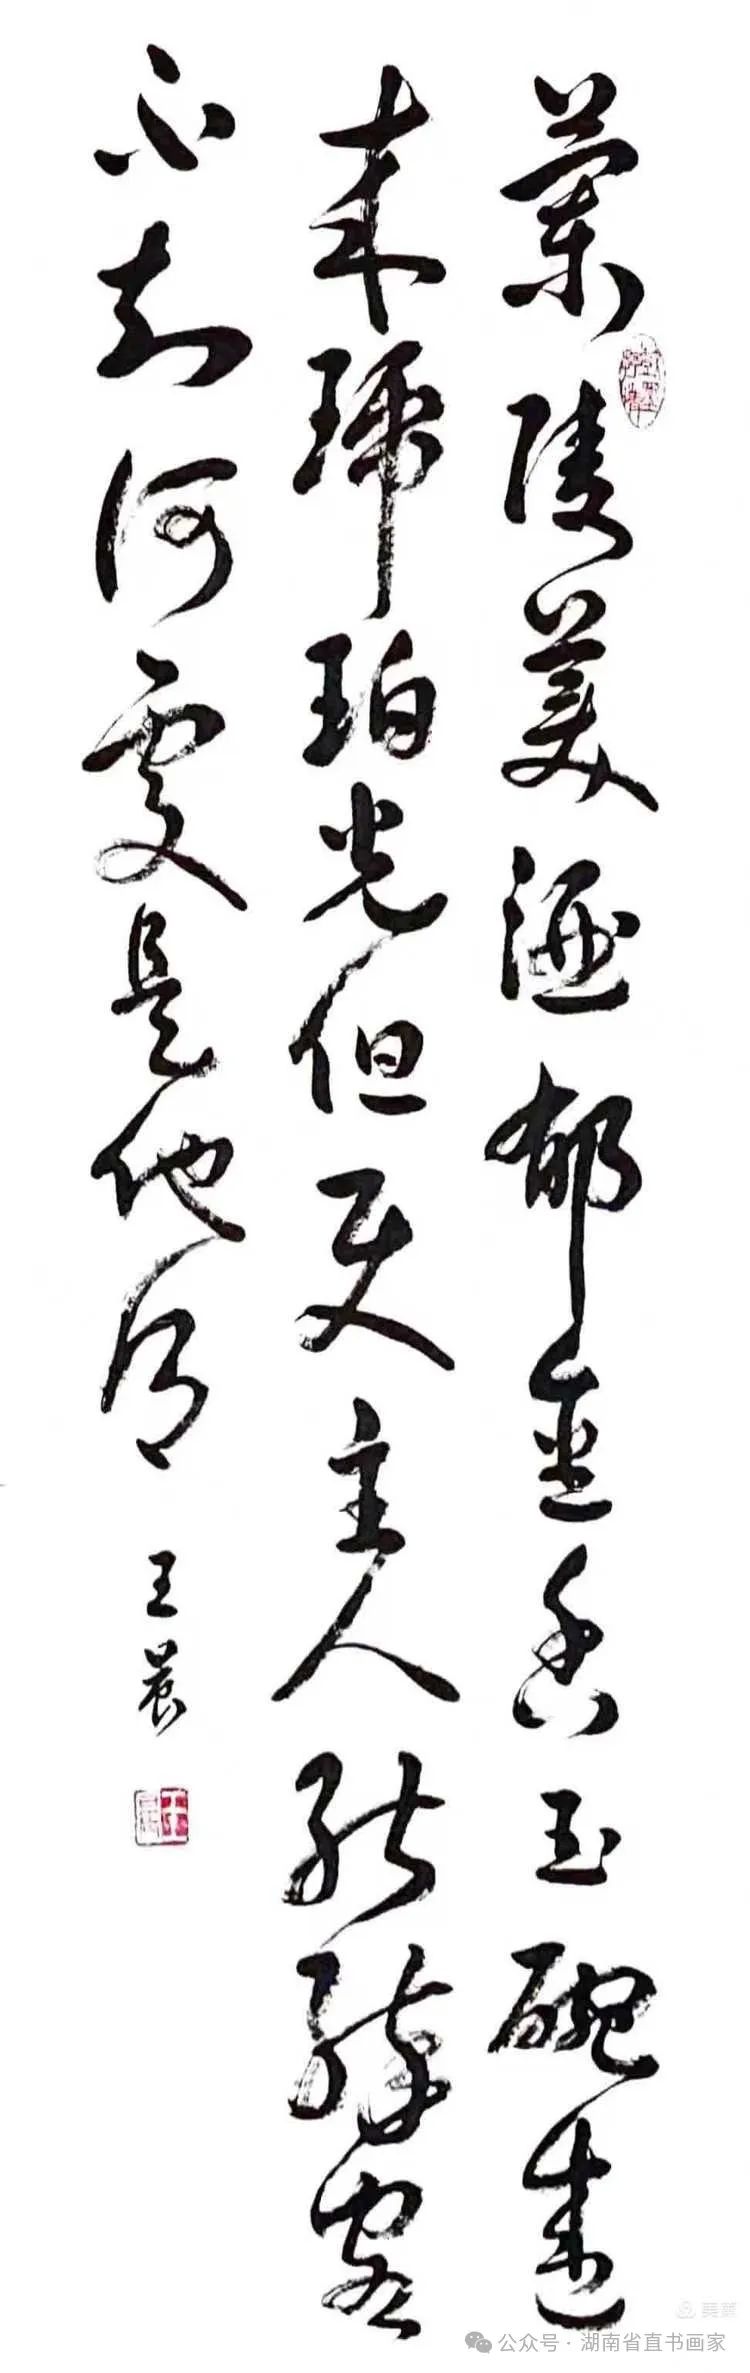 蘭陵美酒郁金香玉碗盛
来琥珀光但使主人能醉客
不知何處是他鄉
王晨
美篇
公众号 · 湖南省直书画家